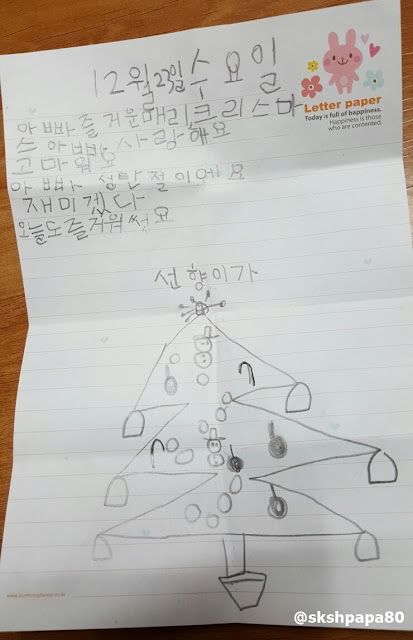 12월23일수요일
Letter paper
Today is full of happiness.
Happiness is those
who are contented.
아빠즐거운매리크리스마
스아빠사랑해요
고마워요
아빠성탄절이에요
재미겠다
오늘도즐거워썻요
선향이가
@skshpapa80